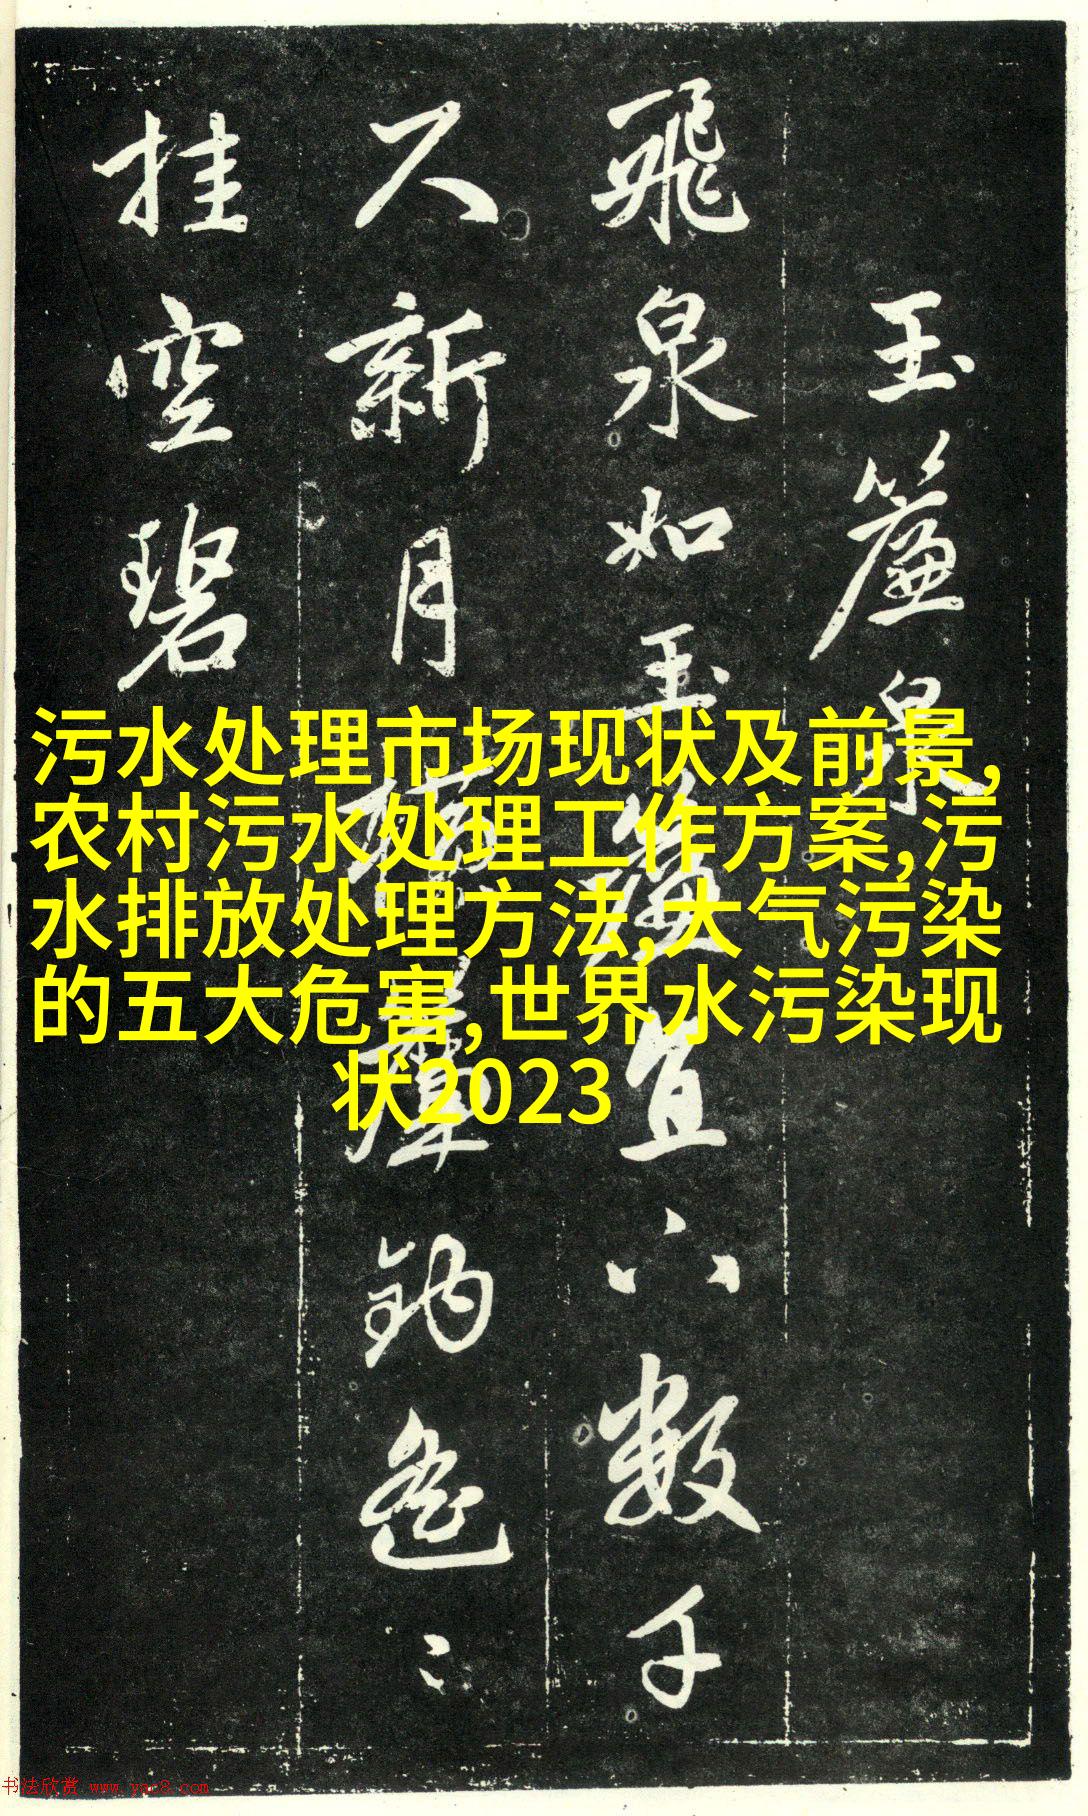 玉簾泉
飛泉如玉簾直下數千
尺新月橫簾鉤遙〻
挂空碧
污水处理市场现状及前景,
农村污水处理工作方案,污
水排放处理方法,大气污染
的五大危害,世界水污染现
状2023
书法欣赏 www.yac8.com